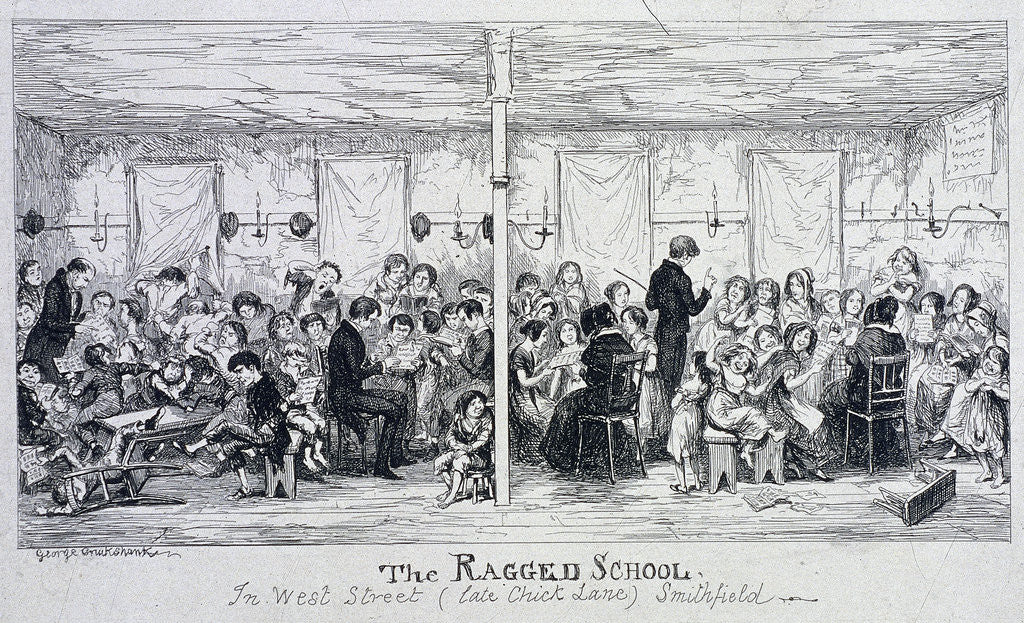 George Cruikshank
The RAGGED SCHOOL.
In West Street (late Chick Lane) Smithfield